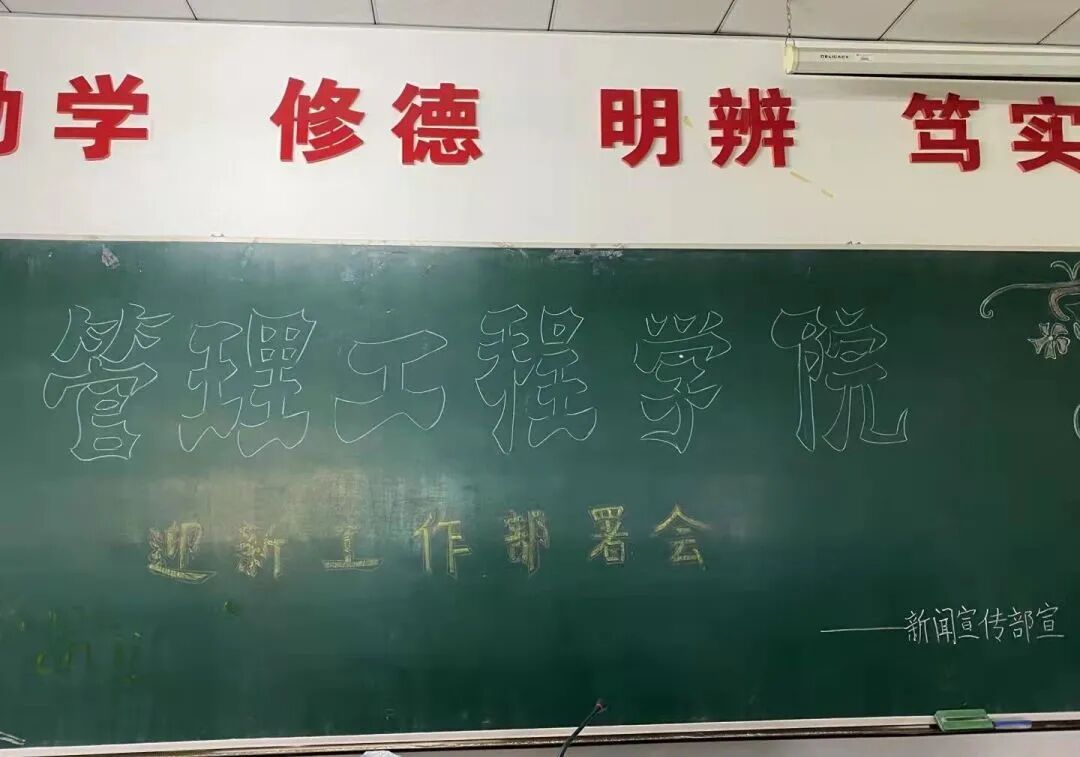 勤学 修德 明辨 笃实
DELIGACY
管理工程学院
迎新工作部署会
——新闻宣传部宣